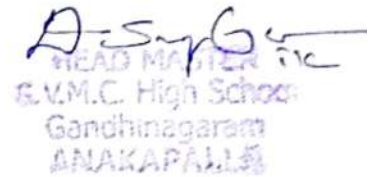 HEAD MASTER
G.V.M.C. High School
Gandhinagaram
ANAKAPALLE